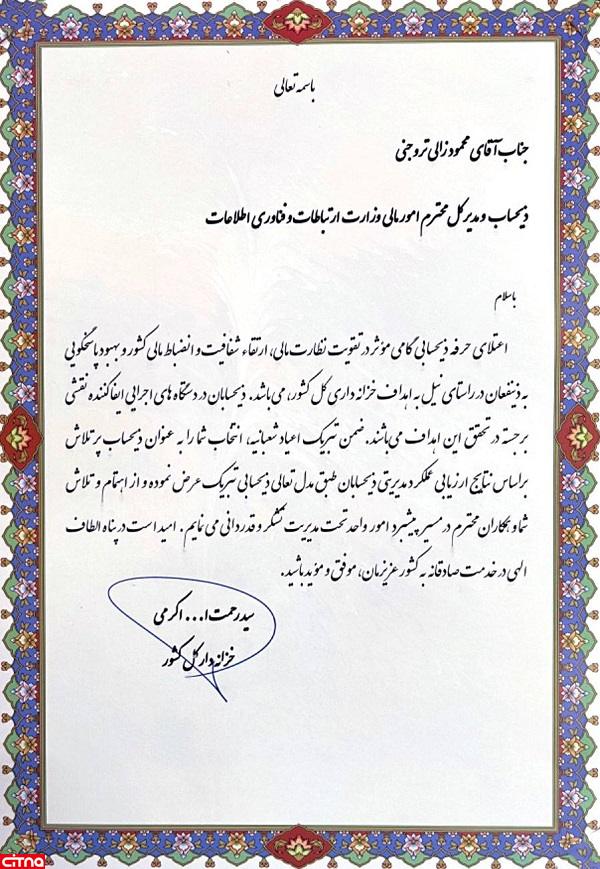 باسمه تعالی
جناب آقای محمود زالی تروجنی
ذیحساب و مدیر کل محترم امور مالی وزارت ارتباطات و فناوری اطلاعات
باسلام
اعتلای حرفه ذیحسابی گامی مؤثر در تقویت نظارت مالی، ارتقاء شفافیت و انضباط مالی کشور و بهبود پاسخگویی
به ذینفعان در راستای نیل به اهداف خزانه داری کل کشور، می‌باشد. ذیحسابان در دستگاه های اجرایی ایفاکننده نقشی
برجسته در تحقق این اهداف می‌باشند. ضمن تبریک اعیاد شعبانیه، انتخاب شما را به عنوان ذیحساب پرتلاش
براساس نتایج ارزیابی عملکرد مدیریتی ذیحسابان طبق مدل تعالی ذیحسابی تبریک عرض نموده و از اهتمام و تلاش
شما و همکاران محترم در مسیر پیشبرد امور واحد تحت مدیریت تشکر و قدردانی می نمایم. امید است در پناه الطاف
الهی در خدمت صادقانه به کشور عزیزمان، موفق و مؤید باشید.
سید رحمت ا... اکرمی
خزانه دار کل کشور
citna